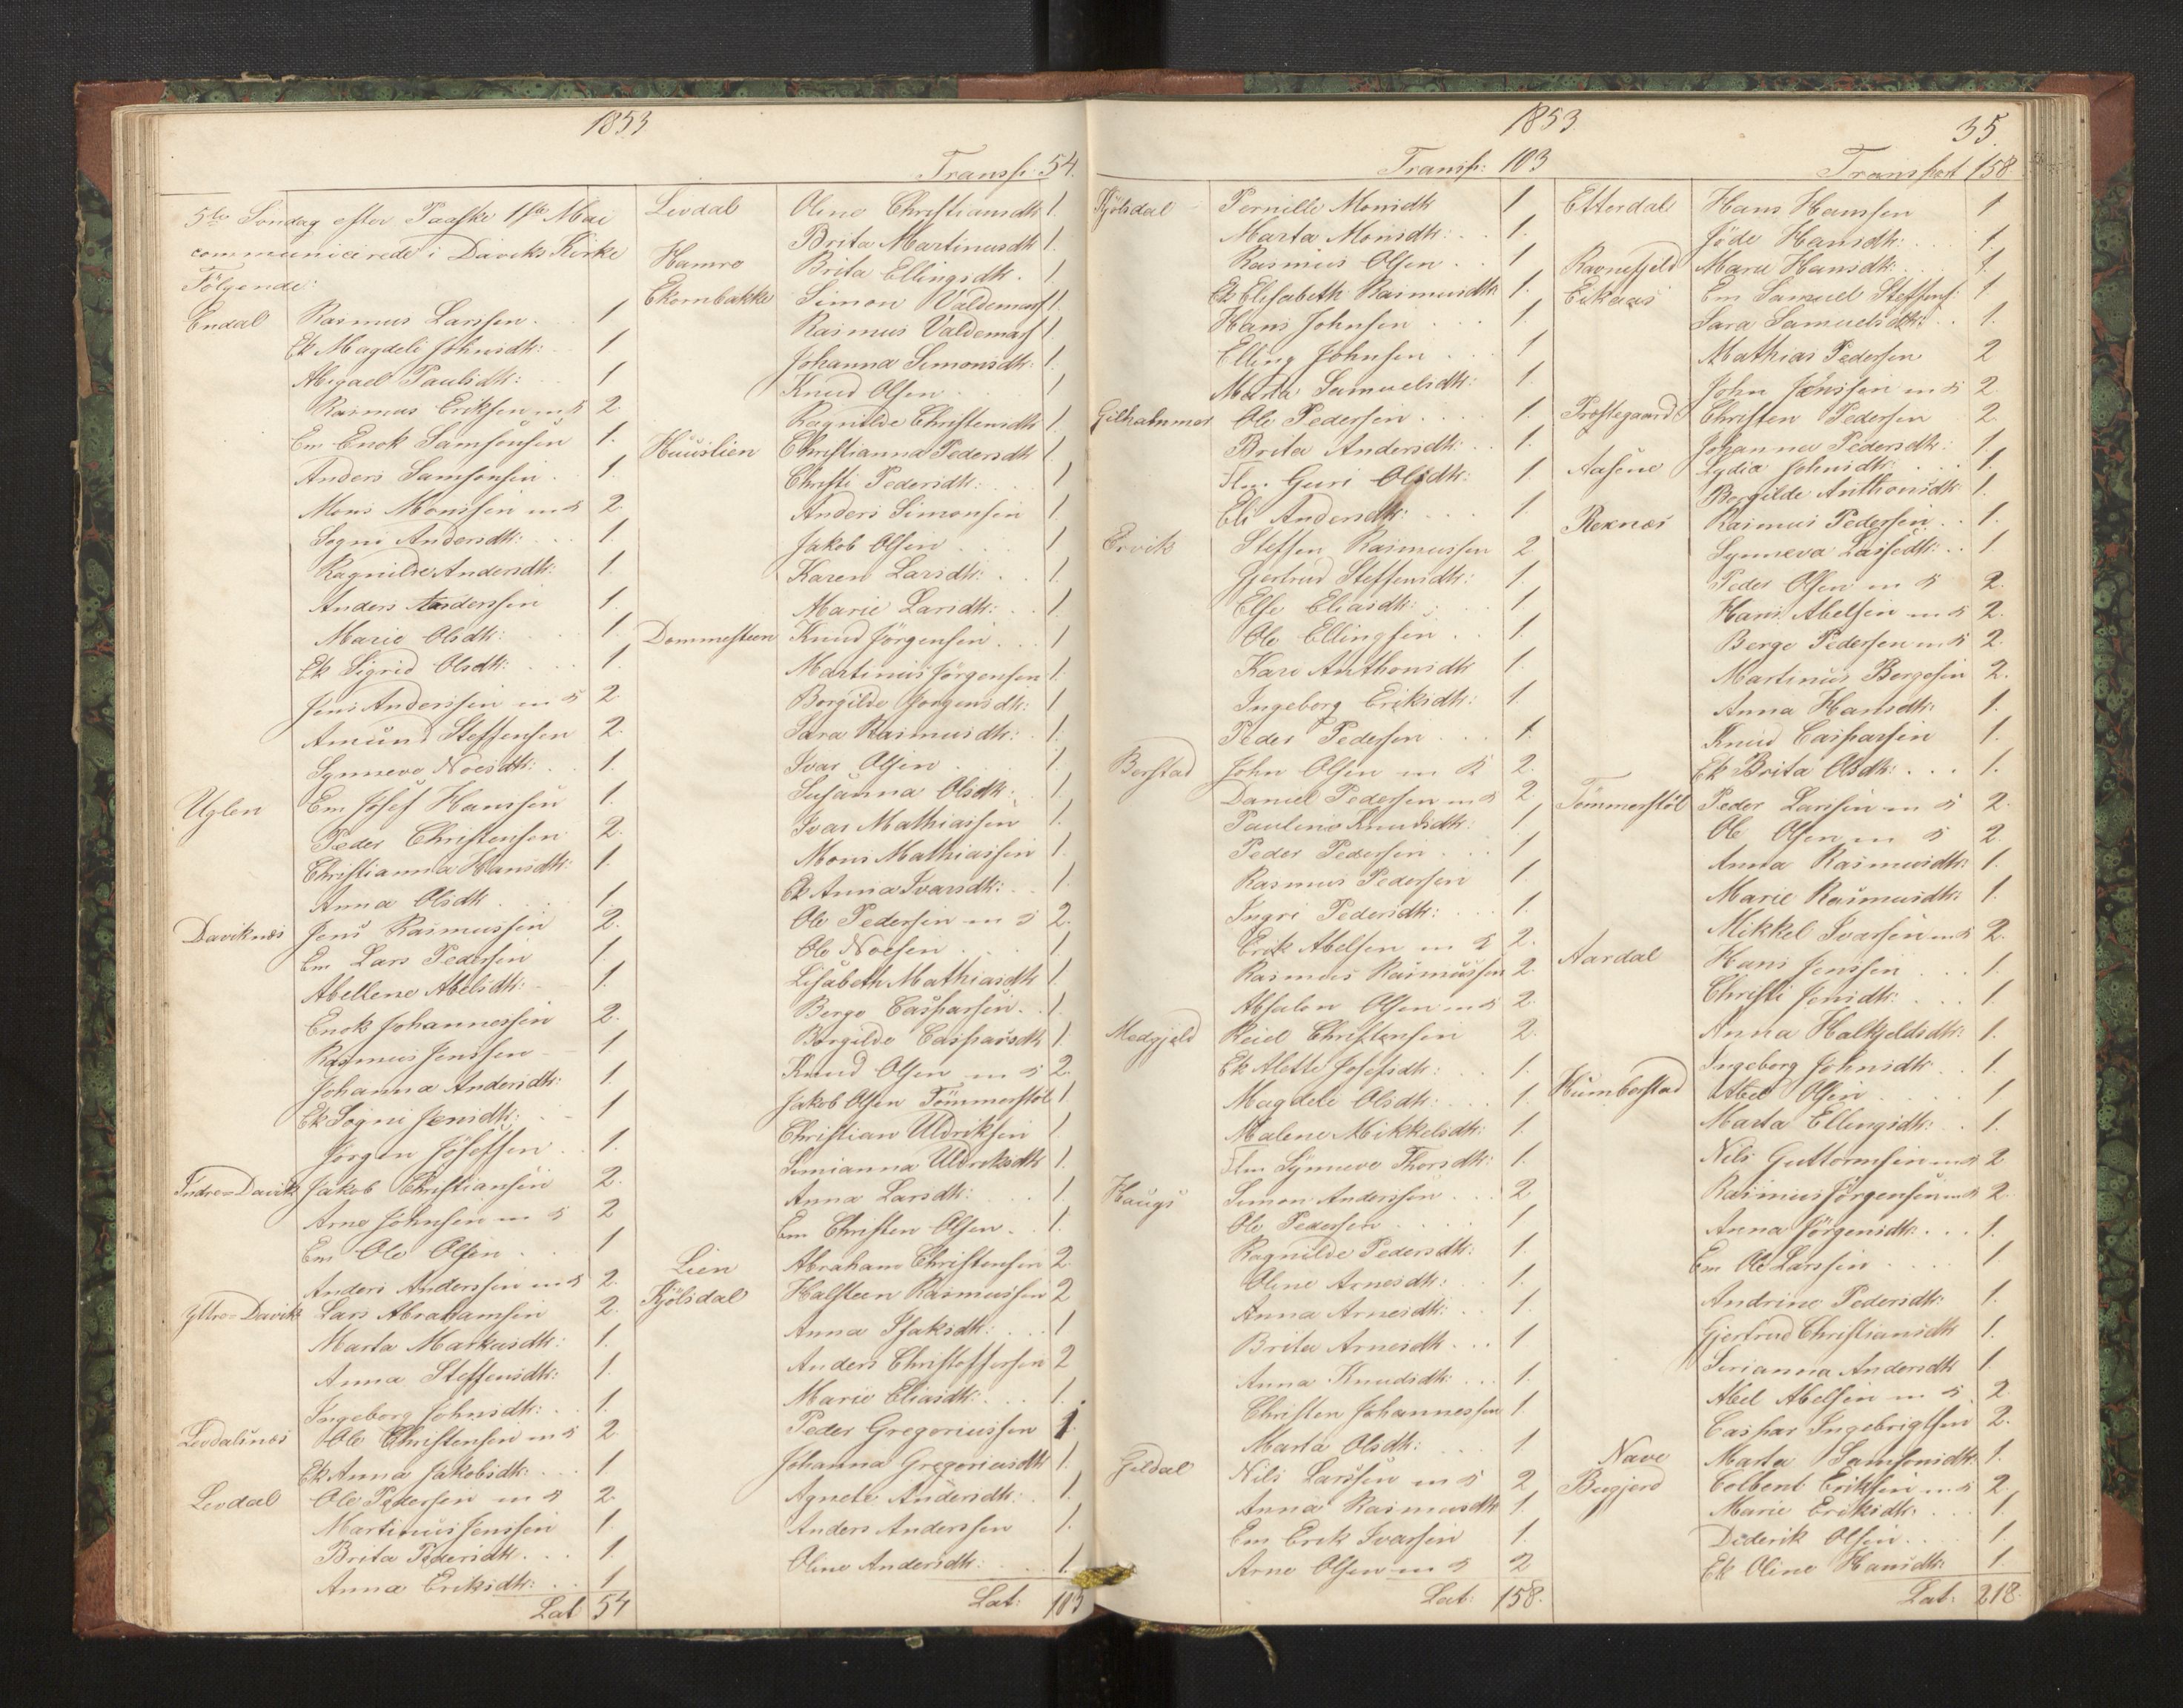 1853
Transp: 54.
5te Søndag efter Paaske 1ste Mai
communicirede i Daviks Kirke
Følgende:
Endal Rasmus Larssen 1
Ek Magdeli Johnsdtr: 1
Abigael Paulsdtr: 1
Rasmus Eriksen m K 2.
Em Enok Samsonsen 1.
Anders Samsonsen 1.
Mons Monssen m K 2.
Sogni Andersdtr: 1.
Ragnilde Andersdtr: 1.
Anders Anderssen 1.
Marie Olsdtr: 1
Ek Sigrid Olsdtr: 1.
Jens Anderssen m K 2.
Amund Steffensen 2.
Synneve Noesdtr: 1.
Uglen Em Josef Hanssen 1.
Peder Christensen 2.
Christianna Hansdtr: 1.
Anna Olsdtr 1.
Daviknæs Jens Rasmussen 2.
Em Lars Pedersen 1.
Abellene Abelsdtr: 1.
Enok Johannessen 2.
Rasmus Jenssen 1
Johanna Andersdtr: 1.
Ek Sogni Jensdtr: 1
Jørgen Josefsen 1.
Indre-Davik Jakob Christiansen 2.
Arne Johnsen m K 2
Em Ole Olsen 1
Anders Anderssen m K 2.
Yttre-Davik Lars Abrahamsen 2.
Marta Markusdtr: 1.
Anna Steffensdtr: 1.
Ingeborg Johnsdtr: 1.
Levdalsnæs Ole Christensen m K 2.
Ek Anna Jakobsdtr: 1
Levdal Ole Pedersen m K 2.
Martinus Jenssen 1.
Brita Pedersdtr. 1.
Anna Eriksdtr: 1
Lat 54
Levdal Oline Christiansdtr 1.
Brita Martinusdtr 1.
Hamre Brita Ellingsdtr. 1
Ekornbakke Simon Valdemars 1.
Rasmus Valdemars 1
Johanna Simonsdtr: 1.
Knud Olsen 1
Ragnilde Christensdtr 1.
Huuslien Christianna Pedersdtr 1
Christi Pedersdtr: 1
Anders Simonsen 1
Jakob Olsen 1
Karen Larsdtr: 1.
Marie Larsdtr: 1
Dommesteen Knud Jørgensen 1
Martinus Jørgensen 1.
Borgilde Jørgensdtr: 1
Sara Rasmusdtr: 1.
Ivar Olsen 1.
Susanna Olsdtr: 1
Ivar Mathiassen 1.
Mons Mathiassen 1
Ek Anna Ivarsdtr: 1.
Ole Pedersen m K 2.
Ole Noesen 1
Lisabeth Mathiasdtr 1
Berge Casparsen 1.
Borgilde Casparsdtr 1.
Knud Olsen m K 2.
Jakob Olsen Tømmerstøl 1
Christian Uldriksen 1
Simianna Uldriksdtr 1.
Anna Larsdtr: 1.
Em Christen Olsen 1.
Lien Abraham Christensen 2.
Kjølsdal Halsteen Rasmussen 2
Anna Isaksdtr: 1
Anders Christoffersen 2
Marie Eliasdtr: 1.
Peder Gregoriussen 1.
Johanna Gregoriusdtr 1.
Agnete Andersdtr: 1.
Anders Anderssen 1.
Oline Andersdtr: 1.
Lat: 103
1853
35.
Transp: 103
Transport 158
Kjølsdal Pernille Monsdtr 1
Marta Monsdtr: 1.
Rasmus Olsen 1
Ek Elisabeth Rasmusdtr 1.
Hans Johnsen 1.
Elling Johnsen 1
Marta Samuelsdtr: 1.
Gilhammer Ole Pedersen 1.
Brita Andersdtr: 1.
Guri Olsdtr: 1.
Eli Andersdtr: 1.
Ervik Steffen Rasmussen 2
Gjertrud Steffensdtr: 1.
Else Eliasdtr: 1
Ole Ellingsen 1.
Kari Anthonsdtr 1.
Ingeborg Eriksdtr: 1.
Peder Pedersen 1.
Berstad John Olsen m K 2.
Daniel Pedersen m K 2.
Pauline Knudsdtr: 1
Peder Pedersen 1
Rasmus Pedersen 1.
Ingri Pedersdtr: 1.
Erik Abelsen m K 2.
Rasmus Rasmussen 2.
Absalon Olsen m K 2.
Medgjeld Reiel Christensen 2.
Ek Alette Josefsdtr: 1.
Magdele Olsdtr: 1.
Malene Mikkelsdtr: 1.
Synneve Thorsdtr: 1.
Haugs Simon Anderssen 2
Ole Pedersen 1
Ragnilde Pedersdtr: 1.
Oline Arnesdtr: 1.
Anna Arnesdtr: 1.
Brita Arnesdtr 1
Anna Knudsdtr: 1.
Christen Johannessen 1
Marta Olsdtr: 1.
Gildal Nils Larssen m K 2
Anna Rasmusdtr 1.
Em Erik Ivarsen 1.
Arne Olsen m K 2
Lat: 158.
Etterdal Hans Hanssen 1
Jøde Hansdtr: 1.
Ravnefjeld Mari Hansdtr: 1.
Eikaas Em Samuel Steffens: 1
Sara Samuelsdtr: 1.
Mathias Pedersen 2
John Jonssen m K 2
Prostegaard Christen Pedersen 2.
Johanne Pedersdtr: 1.
Aasene Lydia Johnsdtr: 1.
Borgilde Anthonsdtr 1.
Rexnæs Rasmus Pedersen 1.
Synneva Lassedtr: 1
Peder Olsen m K 2.
Hans Abelsen m K 2.
Berge Pedersen m K 2.
Martinus Bergesen 2.
Anna Hansdtr: 1.
Knud Casparsen 1.
Ek Brita Olsdtr: 1.
Tømmerstøl Peder Larssen m K 2.
Ole Olsen m K 2.
Anna Rasmusdtr: 1.
Marie Rasmusdtr: 1.
Mikkel Ivarsen m K 2.
Aardal Hans Jenssen 1.
Christi Jensdtr: 1.
Anna Halkjeldsdtr: 1.
Ingeborg Johnsdtr 1.
Humborstad Abel Olsen 1
Marta Ellingsdtr: 1.
Nils Guttormsen m K 2
Rasmus Jørgensen m K 2.
Anna Jørgensdtr: 1.
Em Ole Larssen 1
Andrine Pedersdtr: 1.
Gjertrud Christiansdtr 1.
Serianna Andersdtr 1.
Abel Abelsen m K 2.
Caspar Ingebrigtsen 2.
Nave Marta Samsonsdtr: 1.
Bugjerd Colbent Eriksen m K 2.
Marie Eriksdtr: 1.
Diderik Olsen 1
Ek Oline Hansdtr: 1.
Lat: 218.